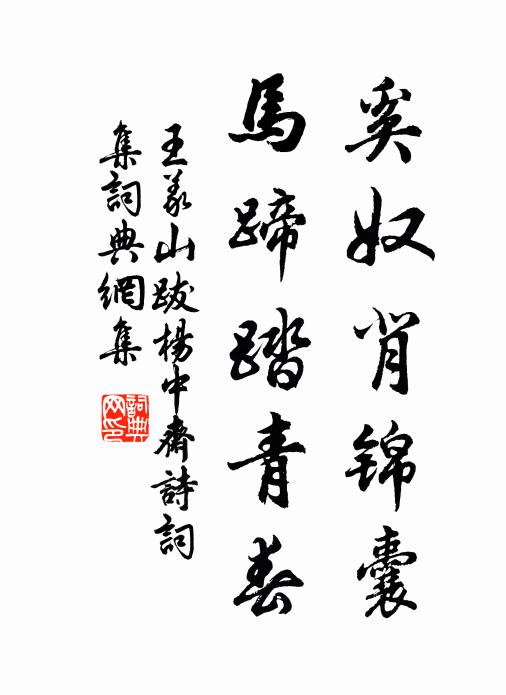 奚奴背锦囊
馬蹄踏青春
王義山跋楊中齋詩詞
集詞典網集
詞典網印